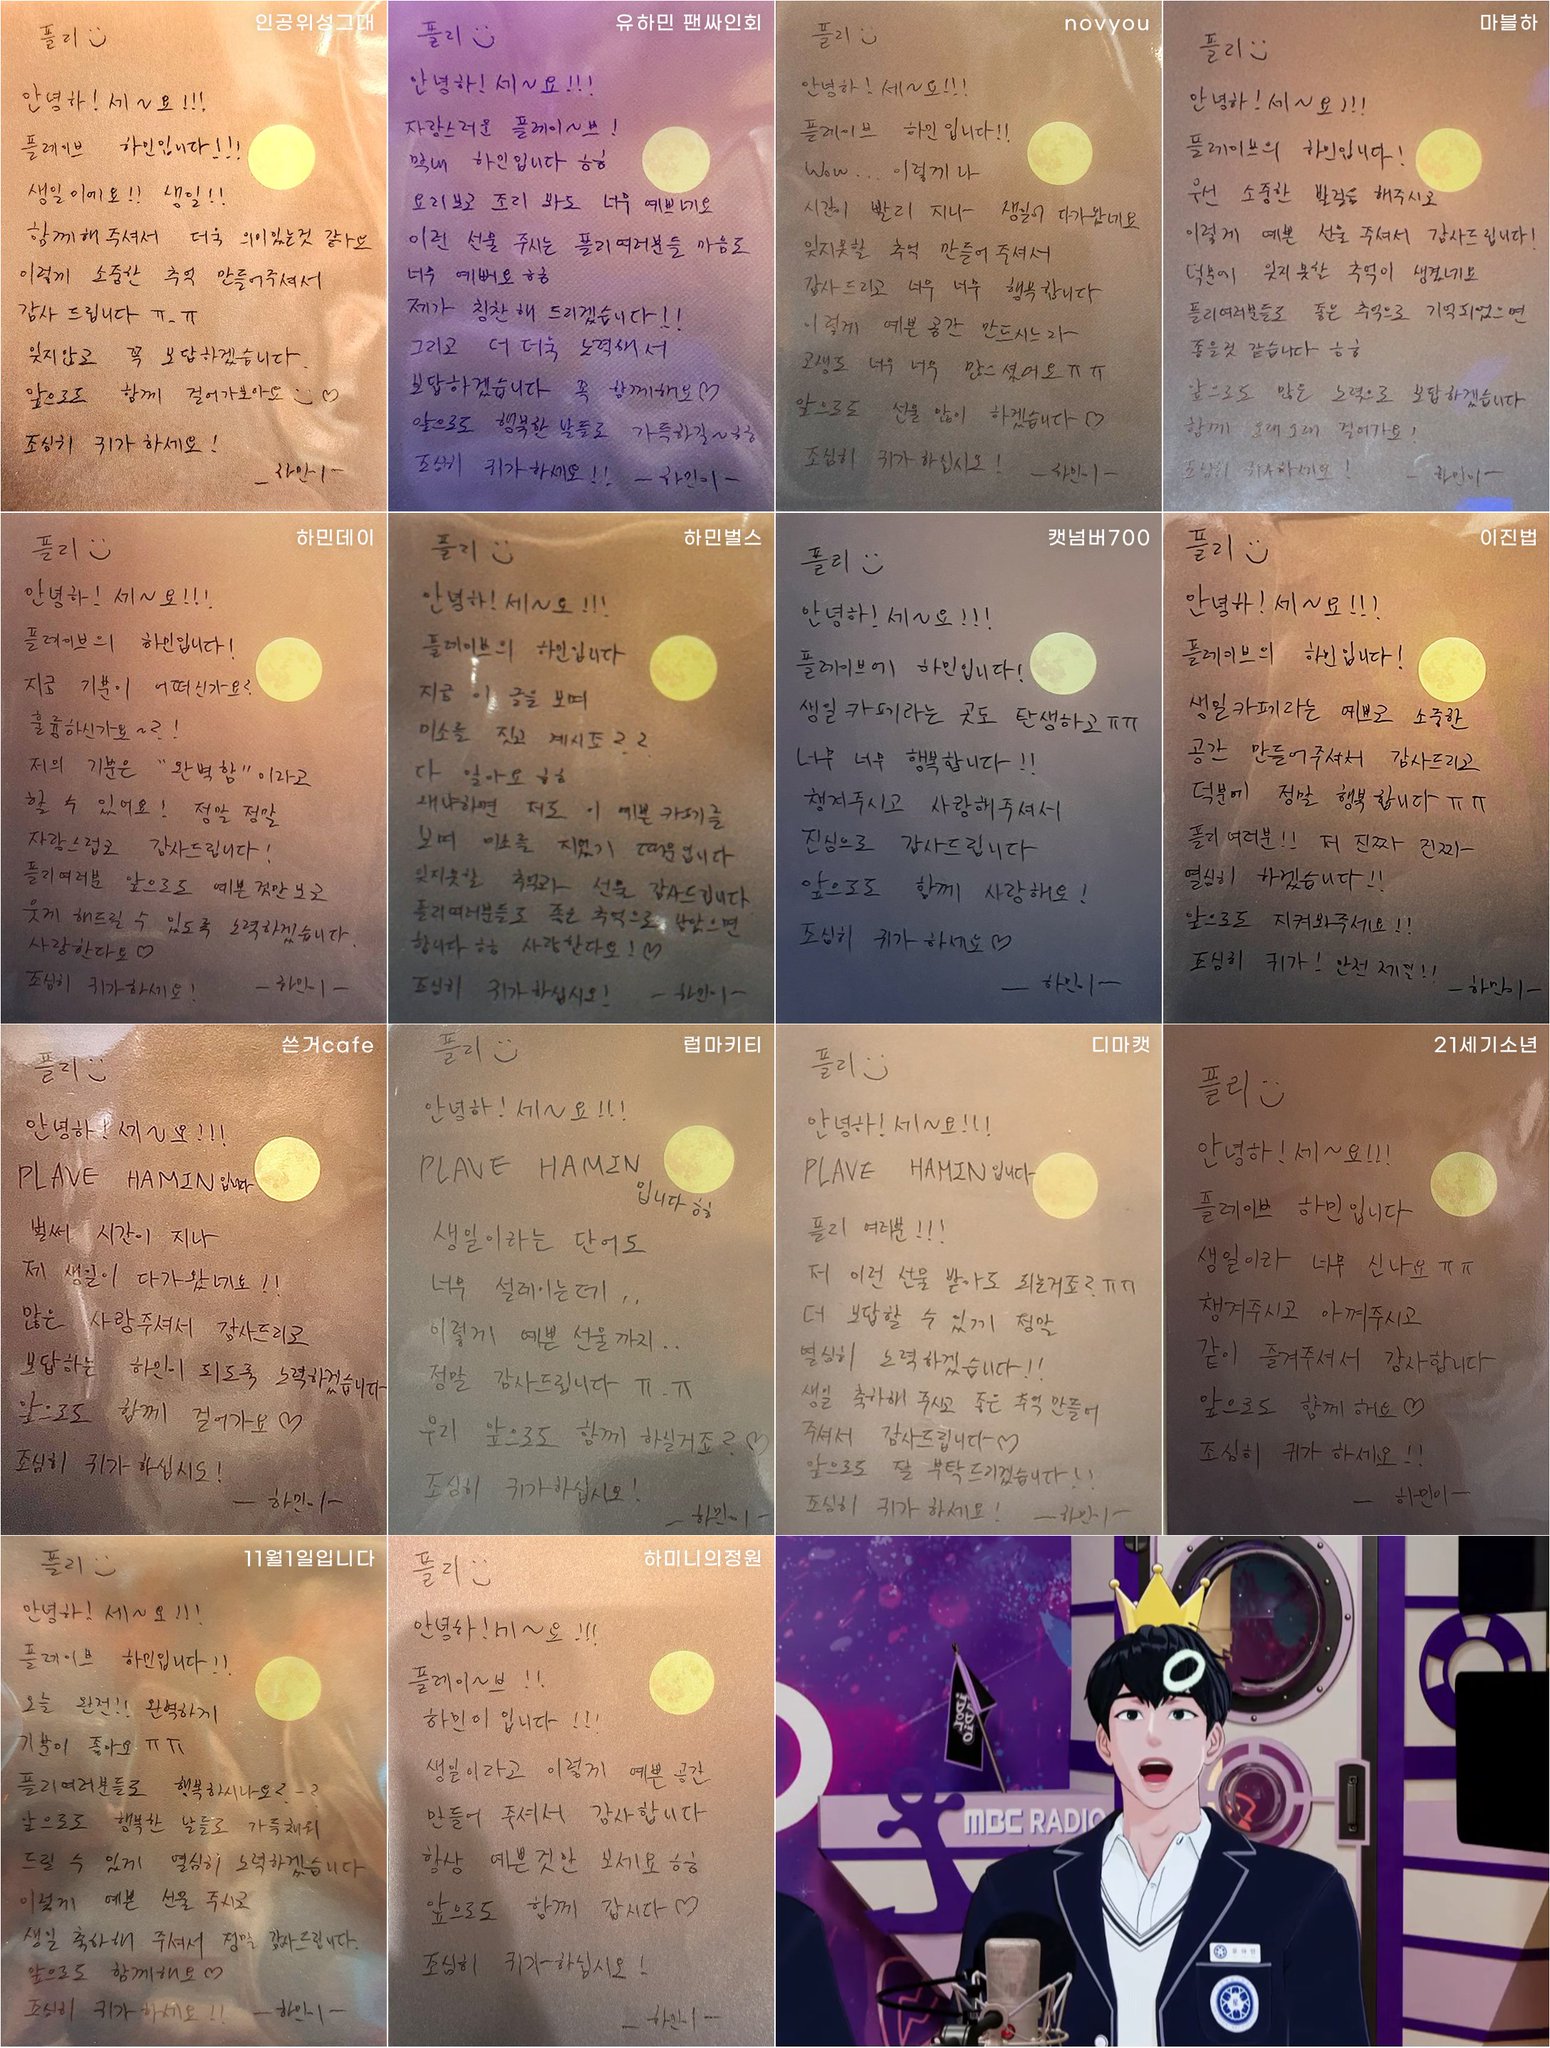 인공위성그대
플리
안녕하! 세~요!!!
플레이브 하민입니다!!!
생일이에요!! 생일!!
함께해 주셔서 더욱 의미있는것 같아요
이렇게 소중한 추억 만들어주셔서
감사 드립니다 ㅠ_ㅠ
잊지않고 꼭 보답하겠습니다.
앞으로도 함께 걸어가보아요 ♡
조심히 귀가 하세요!
-하민이-
유하민 팬싸인회
플리
안녕하! 세~요!!!
자랑스러운 플레이~브!
막내 하민입니다 ㅎㅎ
요리보고 조리 봐도 너무 예쁘네요
이런 선물 주시는 플리여러분들 마음도
너무 예뻐요 ㅎㅎ
제가 칭찬해 드리겠습니다!!
그리고 더 더욱 노력해서
보답하겠습니다 꼭 함께해요♡
앞으로도 행복한 날들로 가득하길~ㅎㅎ
조심히 귀가하세요!! -하민이-
novyou
플리
안녕하! 세~요!!!
플레이브 하민입니다!!
Wow... 이렇게나
시간이 빨리 지나 생일이 다가왔네요
잊지못할 추억 만들어 주셔서
감사드리고 너무 너무 행복합니다
이렇게 예쁜 공간 만드시느라
고생도 너무 너무 많으셨어요 ㅠㅠ
앞으로도 선물 많이 하겠습니다 ♡
조심히 귀가 하십시오! -하민이-
마블하
플리
안녕하! 세~요!!!
플레이브의 하민입니다!
우선 소중한 발걸음 해주시고
이렇게 예쁜 선물 주셔서 감사드립니다!
덕분에 잊지못할 추억이 생겼네요
플리여러분들도 좋은 추억으로 기억되었으면
좋을것 같습니다 ㅎㅎ
앞으로도 많은 노력으로 보답하겠습니다
함께 오래오래 걸어가요!
조심히 귀가하세요! -하민이-
하민데이
플리
안녕하! 세~요!!!
플레이브의 하민입니다!
지금 기분이 어떠신가요?
훌륭하신가요~?!
저의 기분은 "완벽함"이라고
할 수 있어요! 정말 정말
자랑스럽고 감사드립니다!
플리여러분 앞으로도 예쁜것만 보고
웃게 해드릴 수 있도록 노력하겠습니다.
사랑한다요♡
조심히 귀가하세요! -하민이-
하민벌스
플리
안녕하! 세~요!!!
플레이브의 하민입니다
지금 이 글을 보며
미소를 짓고 계시죠??
다 알아요 ㅎㅎ
왜냐하면 저도 이 예쁜카페를
보며 미소를 지었기 때문입니다
잊지못할 추억과 선물 감사드립니다
플리여러분들도 좋은 추억으로 남았으면
합니다 ㅎㅎ 사랑한다요!♡
조심히 귀가하십시오! -하민이-
캣넘버700
플리
안녕하! 세~요!!!
플레이브에 하민입니다!
생일 카페라는 곳도 탄생하고ㅠㅠ
너무 너무 행복합니다!!
챙겨주시고 사랑해주셔서
진심으로 감사드립니다
앞으로도 함께 사랑해요!
조심히 귀가 하세요♡
-하민이-
이진법
플리
안녕하! 세~요!!!
플레이브의 하민입니다!
생일카페라는 예쁘고 소중한
공간 만들어주셔서 감사드리고
덕분에 정말 행복합니다 ㅠㅠ
플리여러분!! 저 진짜 진짜
열심히 하겠습니다!!
앞으로도 지켜봐주세요!!
조심히 귀가! 안전 제일!!
-하민이-
쓴거cafe
플리
안녕하! 세~요!!!
PLAVE HAMIN입니다
벌써 시간이 지나
제 생일이 다가왔네요!!
많은 사랑주셔서 감사드리고
보답하는 하민이 되도록 노력하겠습니다
앞으로도 함께 걸어가요♡
조심히 귀가 하십시오!
-하민이-
럽마키티
플리
안녕하! 세~요!!!
PLAVE HAMIN
입니다 ㅎㅎ
생일이라는 단어도
너무 설레이는데..
이렇게 예쁜 선물까지..
정말 감사드립니다 ㅠ_ㅠ
우리 앞으로도 함께 하실거죠?♡
조심히 귀가하십시오!
-하민이-
디마캣
플리
안녕하! 세~요!!!
PLAVE HAMIN입니다
플리 여러분!!!
저 이런 선물 받아도 되는거죠?ㅠㅠ
더 보답할 수 있게 정말
열심히 노력하겠습니다!!
생일 축하해 주시고 좋은 추억만들어
주셔서 감사드립니다♡
앞으로도 잘 부탁드리겠습니다!!
조심히 귀가 하세요! -하민이-
21세기소년
플리
안녕하! 세~요!!!
플레이브 하민입니다
생일이라 너무 신나요ㅠㅠ
챙겨주시고 아껴주시고
같이 즐겨주셔서 감사합니다
앞으로도 함께해요♡
조심히 귀가 하세요!!
-하민이-
11월1일입니다
플리
안녕하! 세~요!!!
플레이브 하민입니다!!
오늘 완전!! 완벽하게
기분이 좋아요 ㅠㅠ
플리여러분들도 행복하시나요?-?
앞으로도 행복한 날들로 가득채워
드릴 수 있게 열심히 노력하겠습니다
이렇게 예쁜 선물 주시고
생일 축하해 주셔서 정말 감사드립니다.
앞으로도 함께해요♡
조심히 귀가하세요!! -하민이-
하미니의정원
플리
안녕하! 세~요!!!
플레이~브!!
하민이입니다!!!
생일이라고 이렇게 예쁜공간
만들어 주셔서 감사합니다
항상 예쁜것만 보세요ㅎㅎ
앞으로도 함께 갑시다♡
조심히 귀가하십시오!
-하민이-
MBC RADIO
유하민